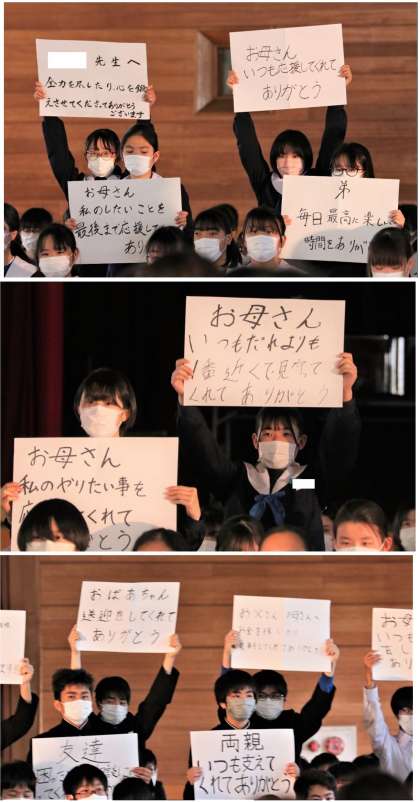 先生へ
全力を尽したり、心を鍛
えさせてくださってありがとう
ございます
お母さん
いつも応援してくれて
ありがとう
お母さん
私のしたいことを
最後まで応援して
あり
弟
毎日最高に楽しい
時間をありが
お母さん
いつもだれよりも
1番近くで見守って
くれてありがとう
お母さん
私のやりたい事を
くれて
がとう
おばあちゃん
送迎をしてくれて
ありがとう
お父さん お母さんへ
お母
いつも
友達
両親
いつも支えて
くれてありがとう